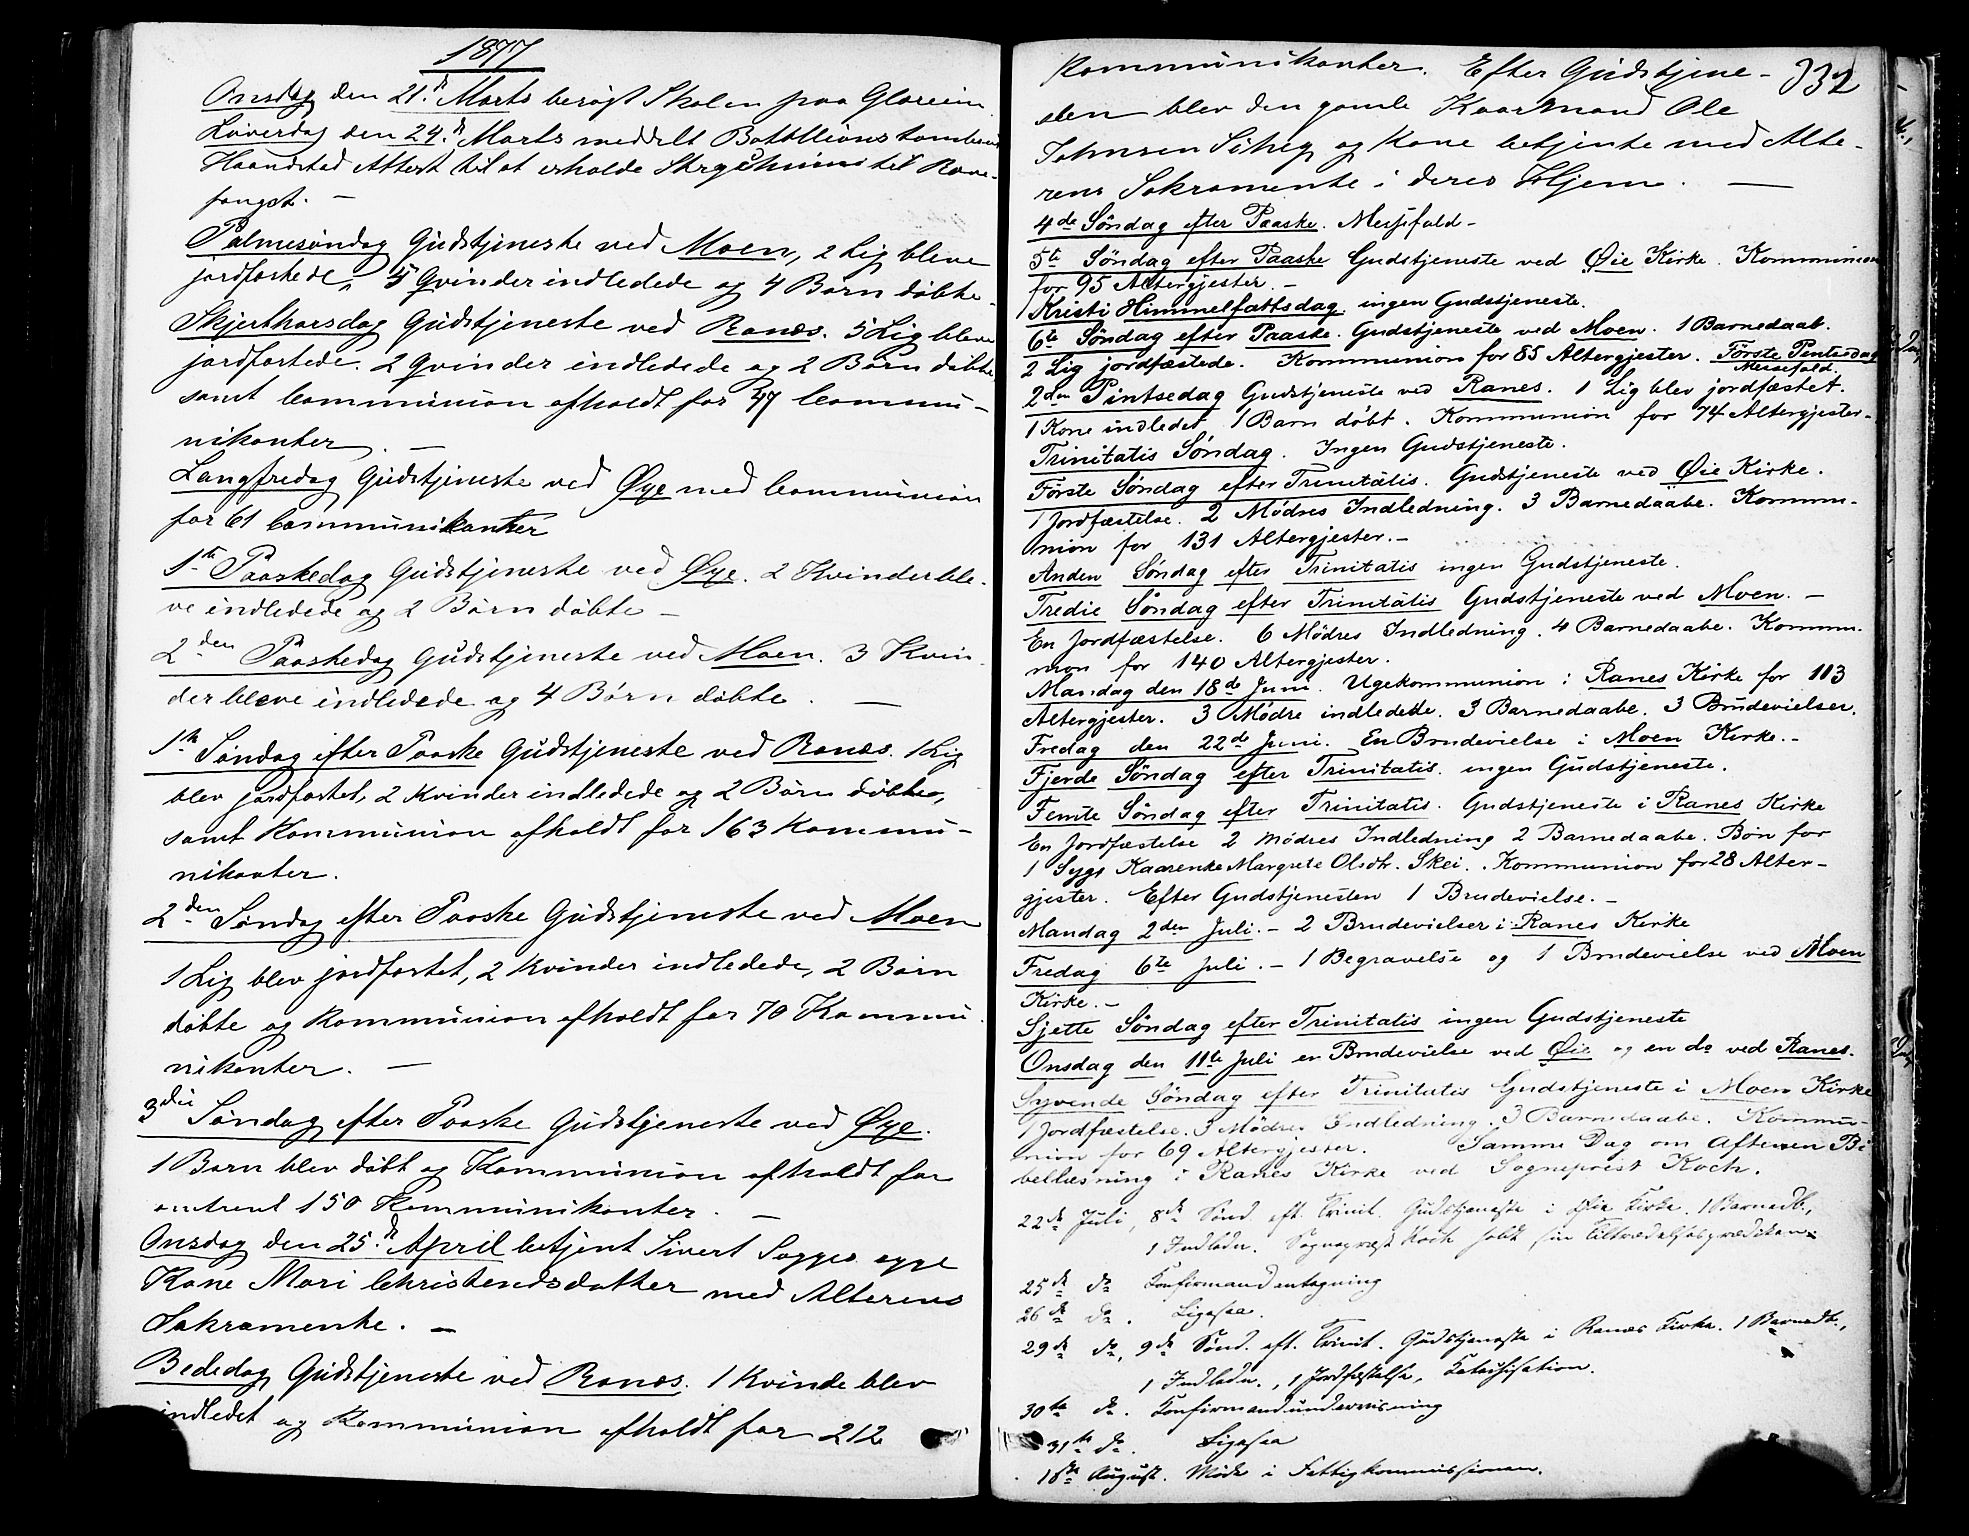 1877
Onsdag den 21. Marts besøgt Skolen paa Glærem
Løverdag den 24. Marts meddelt Battalionstambour
Haandstad Attest til at erholde Strychnini til Ræve-
fangst. —
Palmesøndag Gudstjeneste ved Moen, 2 Lig bleve
jordfæstede, 5 Qvinder indledede og 4 Børn døbte.
Skjærthorsdag Gudstjeneste ved Ranæs. 5 Lig bleve
jordfæstede. 2 Qvinder indledede og 2 Børn døbte,
samt Communion afholdt for 37 Commu-
nikanter. —
Langfredag Gudstjeneste ved Øye med Communion
for 61 Communikanter
1ste Paaskedag Gudstjeneste ved Øye. 2 Kvinder ble-
ve indledede og 2 Børn døbte —
2den Paaskedag Gudstjeneste ved Moen. 3 Kvin-
der bleve indledede og 4 Børn døbte. —
1ste Søndag efter Paaske Gudstjeneste ved Ranæs. 1 Lig
blev jordfæstet, 2 Kvinder indledede og 2 Børn døbte,
samt Kommunion afholdt for 163 Kommu-
nikanter.
2den Søndag efter Paaske Gudstjeneste ved Moen
1 Lig blev jordfæstet, 2 Kvinder indledede, 2 Børn
døbte og Kommunion afholdt for 70 Kommu-
nikanter. —
3die Søndag efter Paaske Gudstjeneste ved Øye.
1 Barn blev døbt og Kommunion afholdt for
omtrent 150 Kommunikanter. —
Onsdag den 25. April betjent Sivert Sagges
Kone Mari Christensdatter med Alterens
Sakramente. —
Bededag Gudstjeneste ved Ranæs. 1 Kvinde blev
indledet og Kommunion afholdt for 212
332
Kommunikanter. Efter Gudstjene-
sten blev den gamle Kaarmand Ole
Johnsen og Kone betjente med Alte-
rens Sakramente i deres Hjem. —
4de Søndag efter Paaske. Messefald -
5te Søndag efter Paaske Gudstjeneste ved Øie Kirke. Kommunion
for 95 Altergjester. —
Kristi Himmelfartsdag ingen Gudstjeneste.
6te Søndag efter Paaske. Gudstjeneste ved Moen. 1 Barnedaab.
2 Lig jordfæstede. Kommunion for 85 Altergjester. Første Pintsedag
Messefald.
2den Pintsedag Gudstjeneste ved Ranes. 1 Lig blev jordfæstet.
1 Kone indledet 1 Barn døbt. Kommunion for 74 Altergjester.
Trinitatis Søndag. Ingen Gudstjeneste.
Første Søndag efter Trinitatis. Gudstjeneste ved Øie Kirke.
1 Jordfæstelse. 2 Mødres Indledning. 3 Barnedaabe. Kommu-
nion for 131 Altergjester. —
Anden Søndag efter Trinitatis ingen Gudstjeneste.
Tredie Søndag efter Trinitatis Gudstjeneste ved Moen. —
En Jordfæstelse. 6 Mødres Indledning. 4 Barnedaabe. Kommu-
nion for 140 Altergjester.
Mandag den 18de Juni. Ugekommunion i Ranes Kirke for 113
Altergjester. 3 Mødre indledede. 3 Barnedaabe. 3 Brudevielser.
Fredag den 22de Juni. En Brudevielse i Moen Kirke. -
Fjerde Søndag efter Trinitatis. ingen Gudstjeneste.
Femte Søndag efter Trinitatis. Gudstjeneste i Ranes Kirke
En Jordfæstelse 2 Mødres Indledning 2 Barnedaabe. Bøn for
1 Syg: Kaarenke Margrete Olsdtr. Skei. Kommunion for 28 Alter-
gjester. Efter Gudstjenesten 1 Brudevielse. —
Mandag 2den Juli. - 2 Brudevielser i Ranes Kirke
Fredag 6te Juli. - 1 Begravelse og 1 Brudevielse ved Moen
Kirke. -
Sjette Søndag efter Trinitatis ingen Gudstjeneste
Onsdag den 11te Juli en Brudevielse ved Øie og en do ved Ranes.
Syvende Søndag efter Trinitatis Gudstjeneste i Moen Kirke
1 Jordfæstelse. 3 Mødres Indledning. 3 Barnedaabe. Kommu-
nion for 69 Altergjester. Samme Dag om Aftenen Bi-
bellæsning i Ranes Kirke ved Sogneprest Koch.
22de Juli, 8de Sønd. eft. Trinit. Gudstjeneste i Øie Kirke. 1 Barnedb.,
1 Indledn. Sogneprest Koch holdt sin Tiltrædelsesprædiken.
25de do Konfirmandantagning
26de do. Ligesaa.
29de do, 9de Sønd. eft. Trinit. Gudstjeneste i Ranæs Kirke. 1 Barnedb.,
1 Indledn., 1 Jordfæstelse, Katechisation.
30te do. Konfirmandundervisning
31te do. Ligesaa
16de August. Møde i Fattigkommissionen.